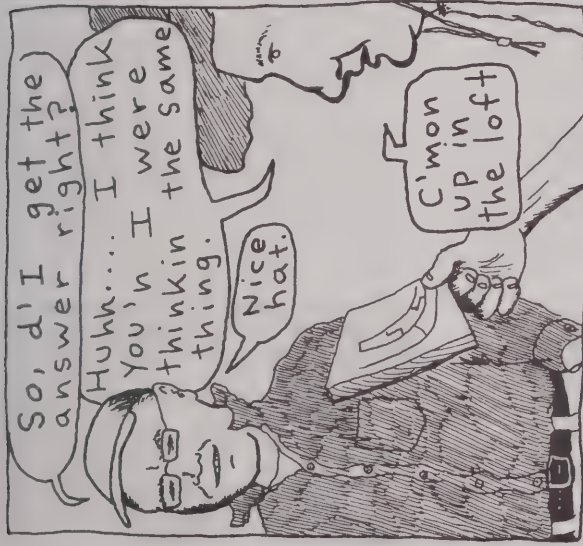 So, d'I get the
answer right?
Huhh.... I think
You'n I were
thinkin the same
thing.
Nice
hat.
C'mon
up in
the loft